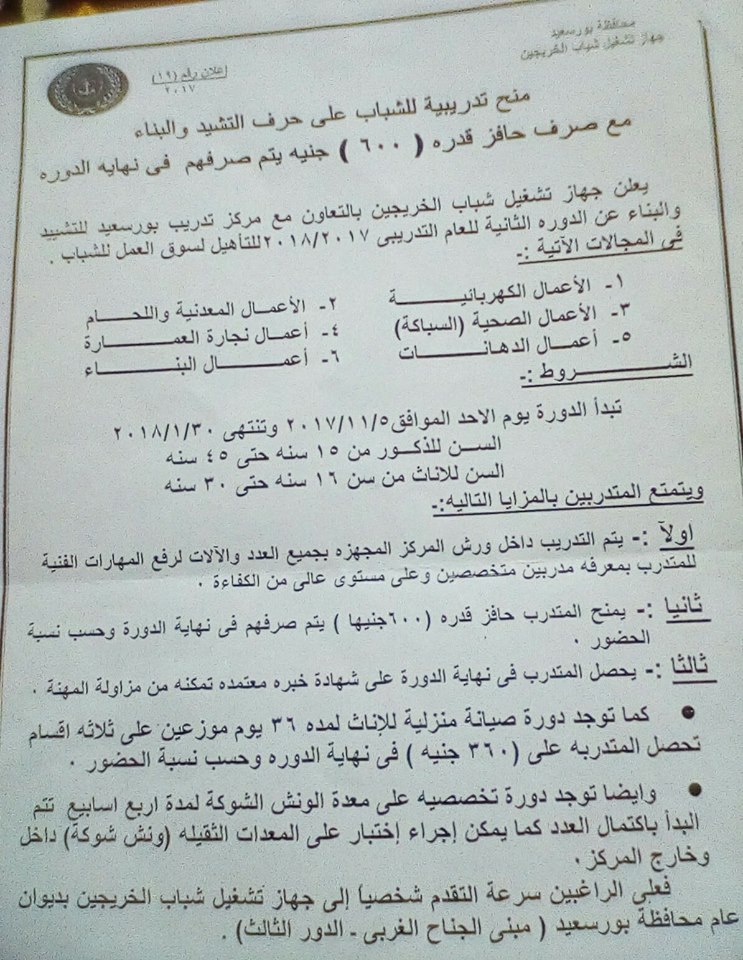 محافظة بورسعيد
جهاز تشغيل شباب الخريجين
إعلان رقم (١٩)
٢٠١٧
منح تدريبية للشباب على حرف التشيد والبناء
مع صرف حافز قدره ( ٦٠٠ ) جنيه يتم صرفهم فى نهايه الدوره
يعلن جهاز تشغيل شباب الخريجين بالتعاون مع مركز تدريب بورسعيد للتشييد
والبناء عن الدوره الثانية للعام التدريبى ٢٠١٨/٢٠١٧ للتأهيل لسوق العمل للشباب .
فى المجالات الآتية :-
١- الأعمال الكهربائيـــــــــة ٢- الأعمال المعدنية واللحـــام
٣- الأعمال الصحية (السباكة) ٤- أعمـال نجارة العمــــارة
٥- أعمـــال الدهانـــــات ٦- أعمـــــــال البنــــــاء
الشــــــــروط :-
تبدأ الدورة يوم الاحد الموافق ٢٠١٧/١١/٥ وتنتهى ٢٠١٨/١/٣٠
الســن للذكــور من ١٥ سنه حتى ٤٥ سنه
السن للاناث من سن ١٦ سنه حتى ٣٠ سنه
ويتمتع المتدربين بالمزايا التاليه:-
اولآ :- يتم التدريب داخل ورش المركز المجهزه بجميع العدد والآلات لرفع المهارات الفنية
للمتدرب بمعرفه مدربين متخصصين وعلى مستوى عالى من الكفاءة .
ثانيا :- يمنح المتدرب حافز قدره (٦٠٠جنيها ) يتم صرفهم فى نهاية الدورة وحسب نسبة
الحضور .
ثالثا :- يحصل المتدرب فى نهاية الدورة على شهادة خبره معتمده تمكنه من مزاولة المهنة .
● كما توجد دورة صيانة منزلية للإناث لمده ٣٦ يوم موزعين على ثلاثه اقسام
تحصل المتدربه على (٣٦٠ جنيه ) فى نهاية الدوره وحسب نسبة الحضور .
● وايضا توجد دورة تخصصيه على معدة الونش الشوكة لمدة اربع اسابيع تتم
البدأ باكتمال العدد كما يمكن إجراء إختبار على المعدات الثقيله (ونش شوكة) داخل
وخارج المركز.
فعلى الراغبين سرعة التقدم شخصياً إلى جهاز تشغيل شباب الخريجين بديوان
عام محافظة بورسعيد ( مبنى الجناح الغربى - الدور الثالث) .